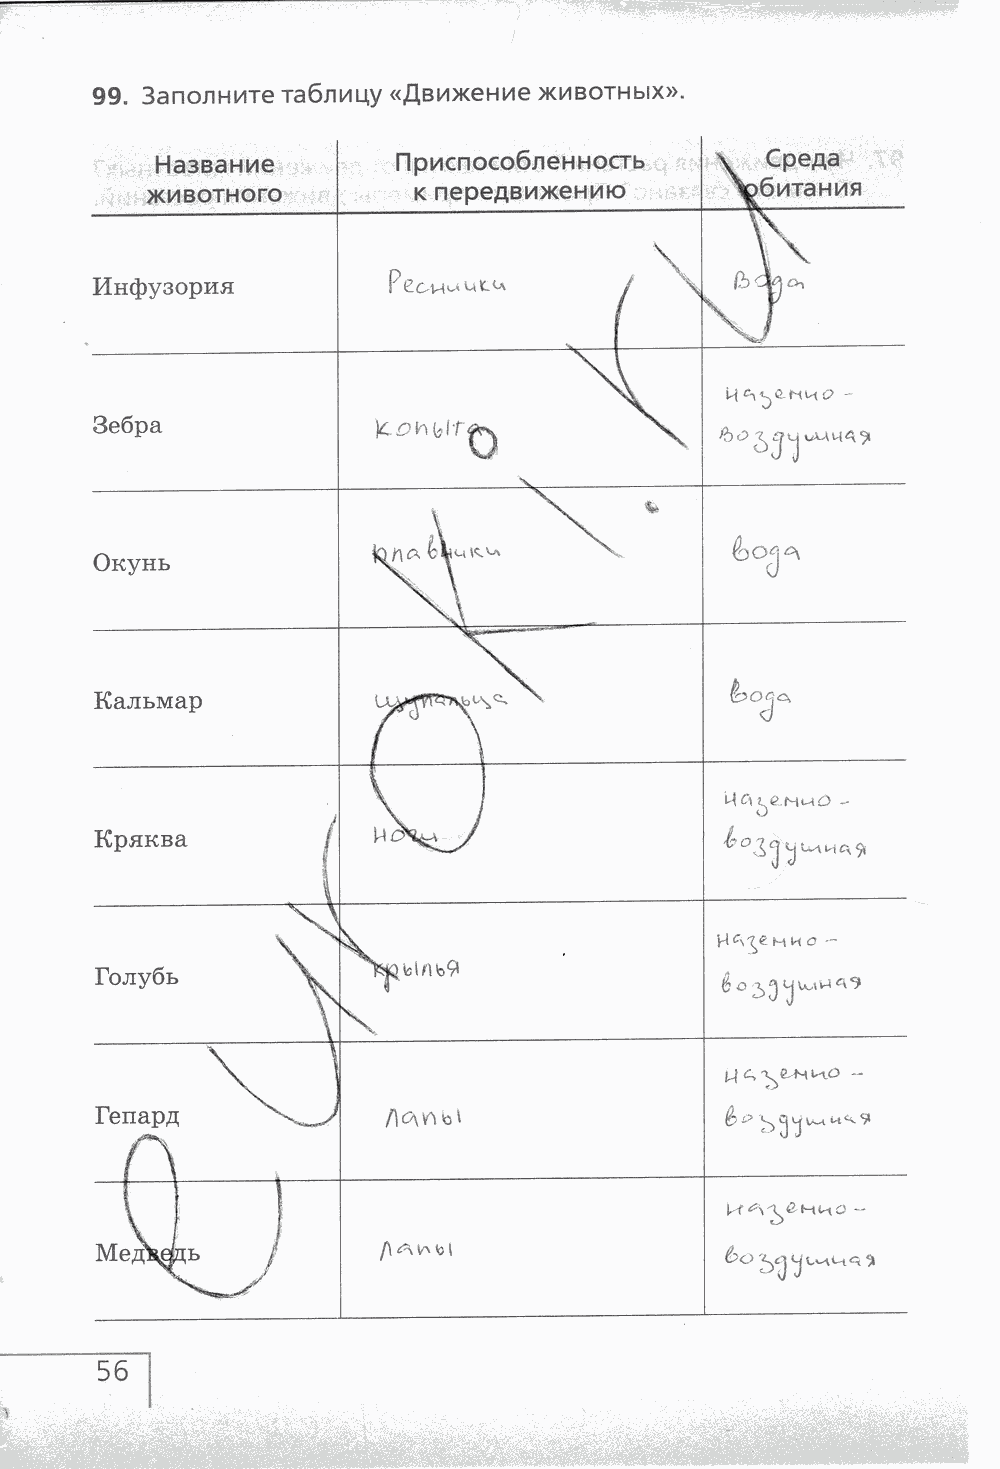 99. Заполните таблицу «Движение животных».
Название животного
Приспособленность к передвижению
Среда обитания
Инфузория Реснички Вода
Зебра копыта наземно-
воздушная
Окунь плавники вода
Кальмар щупальца вода
Кряква ноги наземно-
воздушная
Голубь крылья наземно-
воздушная
Гепард лапы наземно-
воздушная
Медведь лапы наземно-
воздушная
56